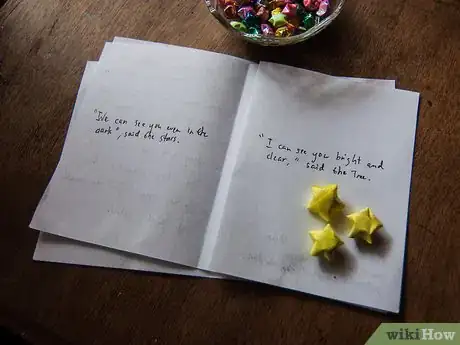 "We can see you even in the
dark", said the stars.
"I can see you bright and
clear," said the Tree.
wikiHow